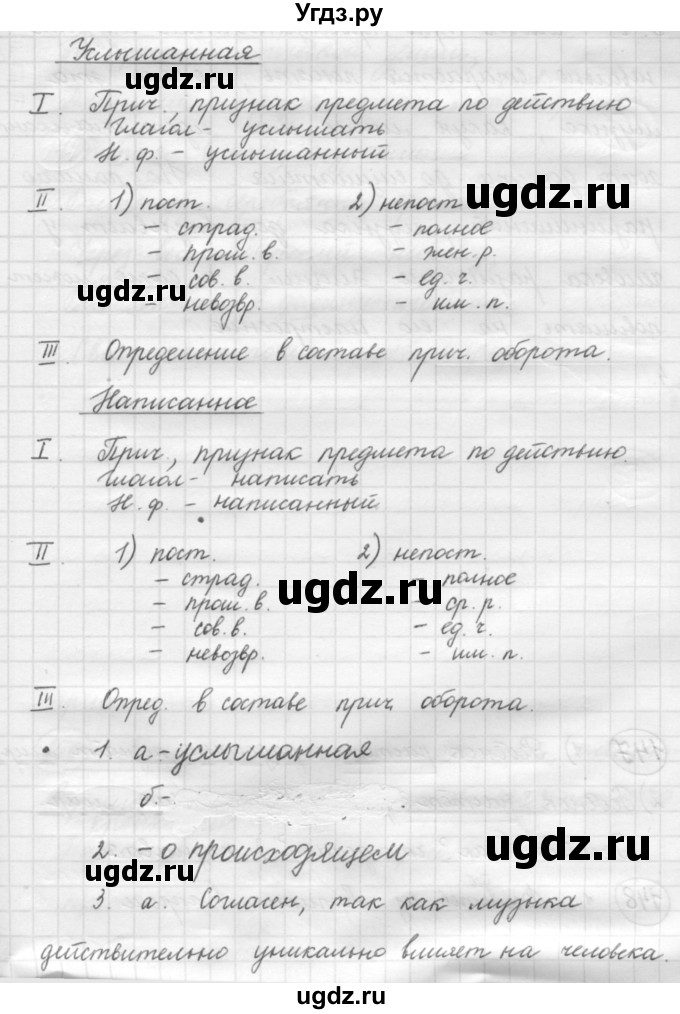 Угдз.ру
Услышанная
ugdz.ru
I. Прич., признак предмета по действию
Глагол - услышать
Н. ф. - услышанный
ugdz.ru
II. 1) пост. 2) непост.
- страд. - полное
- прош. в. - жен. р.
- сов. в. - ед. ч.
ugdz.ru
- невозвр. - им. п.
III. Определение в составе прич. оборота.
Написанное
I. Прич., признак предмета по действию.
Глагол - написать
Н. ф. - написанный
II. 1) пост. 2) непост.
- страд. - полное
ugdz.ru
- прош. в. - ср. р.
- сов. в. - ед. ч.
- невозвр. - им. п.
III. Опред. в составе прич. оборота.
• 1. а - услышанная
б. -
2. - о происходящем
ugdz.ru
ugdz.ru
3. а. Согласен, так как музыка
действительно уникально влияет на человека.
ugdz.ru